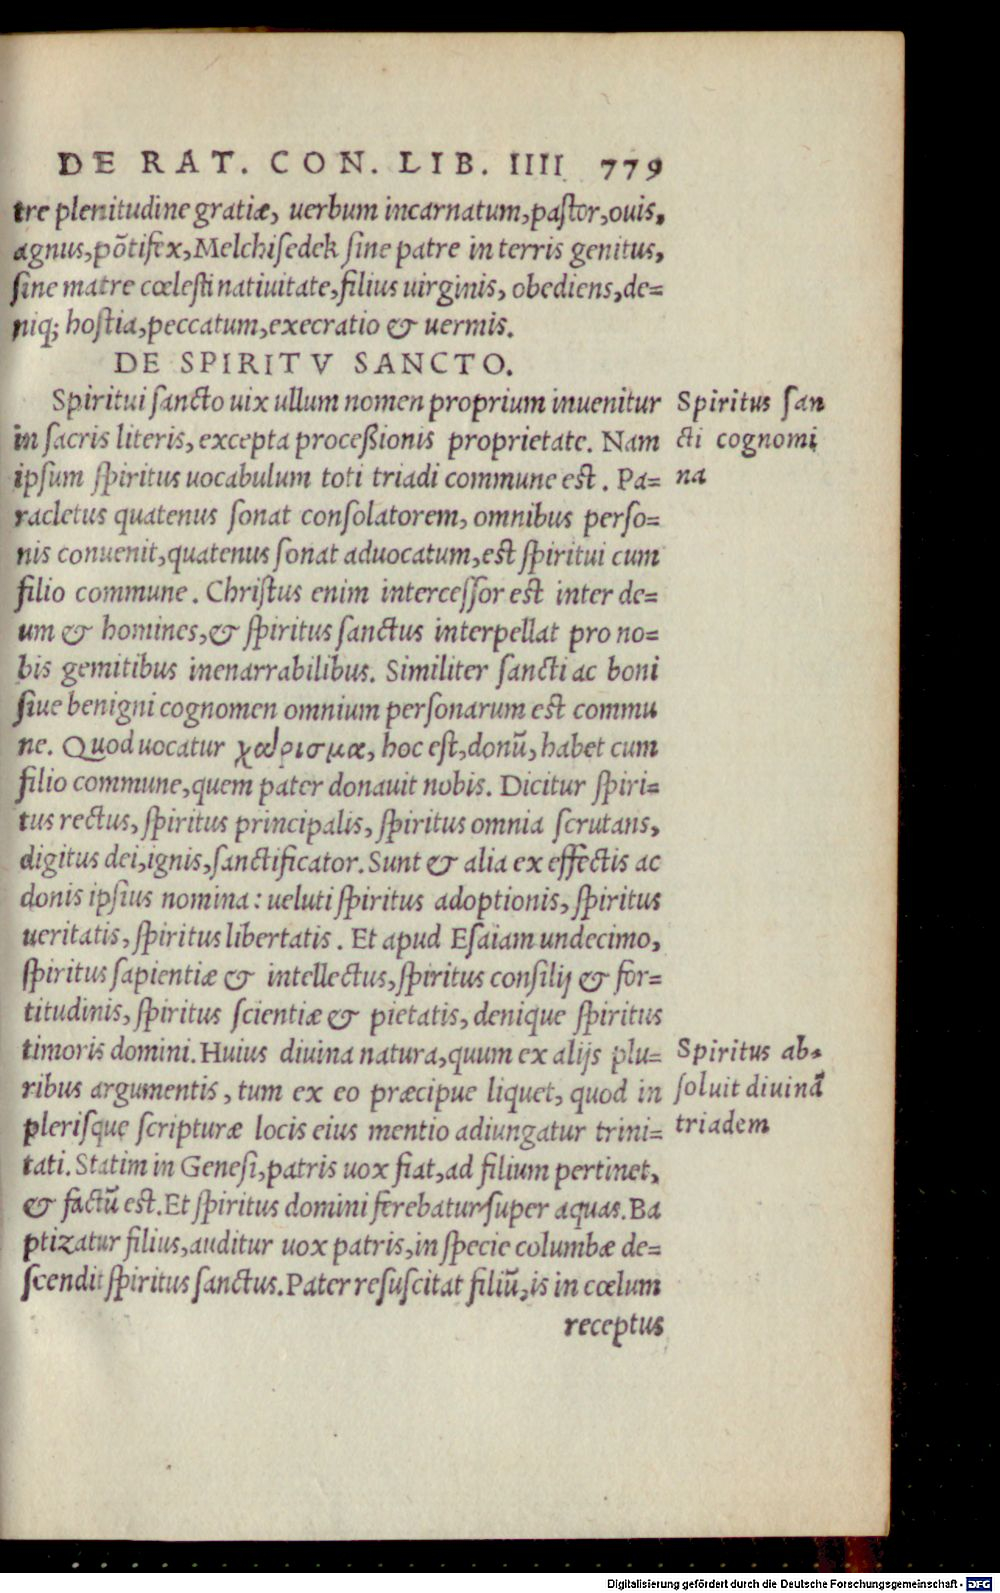 DE RAT. CON. LIB. IIII 779
tre plenitudine gratiæ, uerbum incarnatum, paſtor, ouis,
agnus, põtifex, Melchiſedek ſine patre in terris genitus,
ſine matre cœleſti natiuitate, filius uirginis, obediens, de=
niq; hoſtia, peccatum, execratio & uermis.
DE SPIRITV SANCTO.
Spiritui ſancto uix ullum nomen proprium inuenitur
in ſacris literis, excepta proceßionis proprietate. Nam
ipſum ſpiritus uocabulum toti triadi commune eſt. Pa=
racletus quatenus ſonat conſolatorem, omnibus perſo=
nis conuenit, quatenus ſonat aduocatum, eſt ſpiritui cum
filio commune. Chriſtus enim interceſſor eſt inter de=
um & homines, & ſpiritus ſanctus interpellat pro no=
bis gemitibus inenarrabilibus. Similiter ſancti ac boni
ſiue benigni cognomen omnium perſonarum eſt commu
ne. Quod uocatur χάρισμα, hoc eſt, donũ, habet cum
filio commune, quem pater donauit nobis. Dicitur ſpiri=
tus rectus, ſpiritus principalis, ſpiritus omnia ſcrutans,
digitus dei, ignis, ſanctificator. Sunt & alia ex effectis ac
donis ipſius nomina: ueluti ſpiritus adoptionis, ſpiritus
ueritatis, ſpiritus libertatis. Et apud Eſaiam undecimo,
ſpiritus ſapientiæ & intellectus, ſpiritus conſilij & for=
titudinis, ſpiritus ſcientiæ & pietatis, denique ſpiritus
timoris domini. Huius diuina natura, quum ex alijs plu=
ribus argumentis, tum ex eo præcipue liquet, quod in
pleriſque ſcripturæ locis eius mentio adiungatur trini=
tati. Statim in Geneſi, patris uox fiat, ad filium pertinet,
& factũ eſt. Et ſpiritus domini ferebatur ſuper aquas. Ba
ptizatur filius, auditur uox patris, in ſpecie columbæ de=
ſcendit ſpiritus ſanctus. Pater reſuſcitat filiũ, is in cœlum
receptus
Spiritus ſan
cti cognomi
na
Spiritus ab=
ſoluit diuinã
triadem
Digitalisierung gefördert durch die Deutsche Forschungsgemeinschaft - DFG